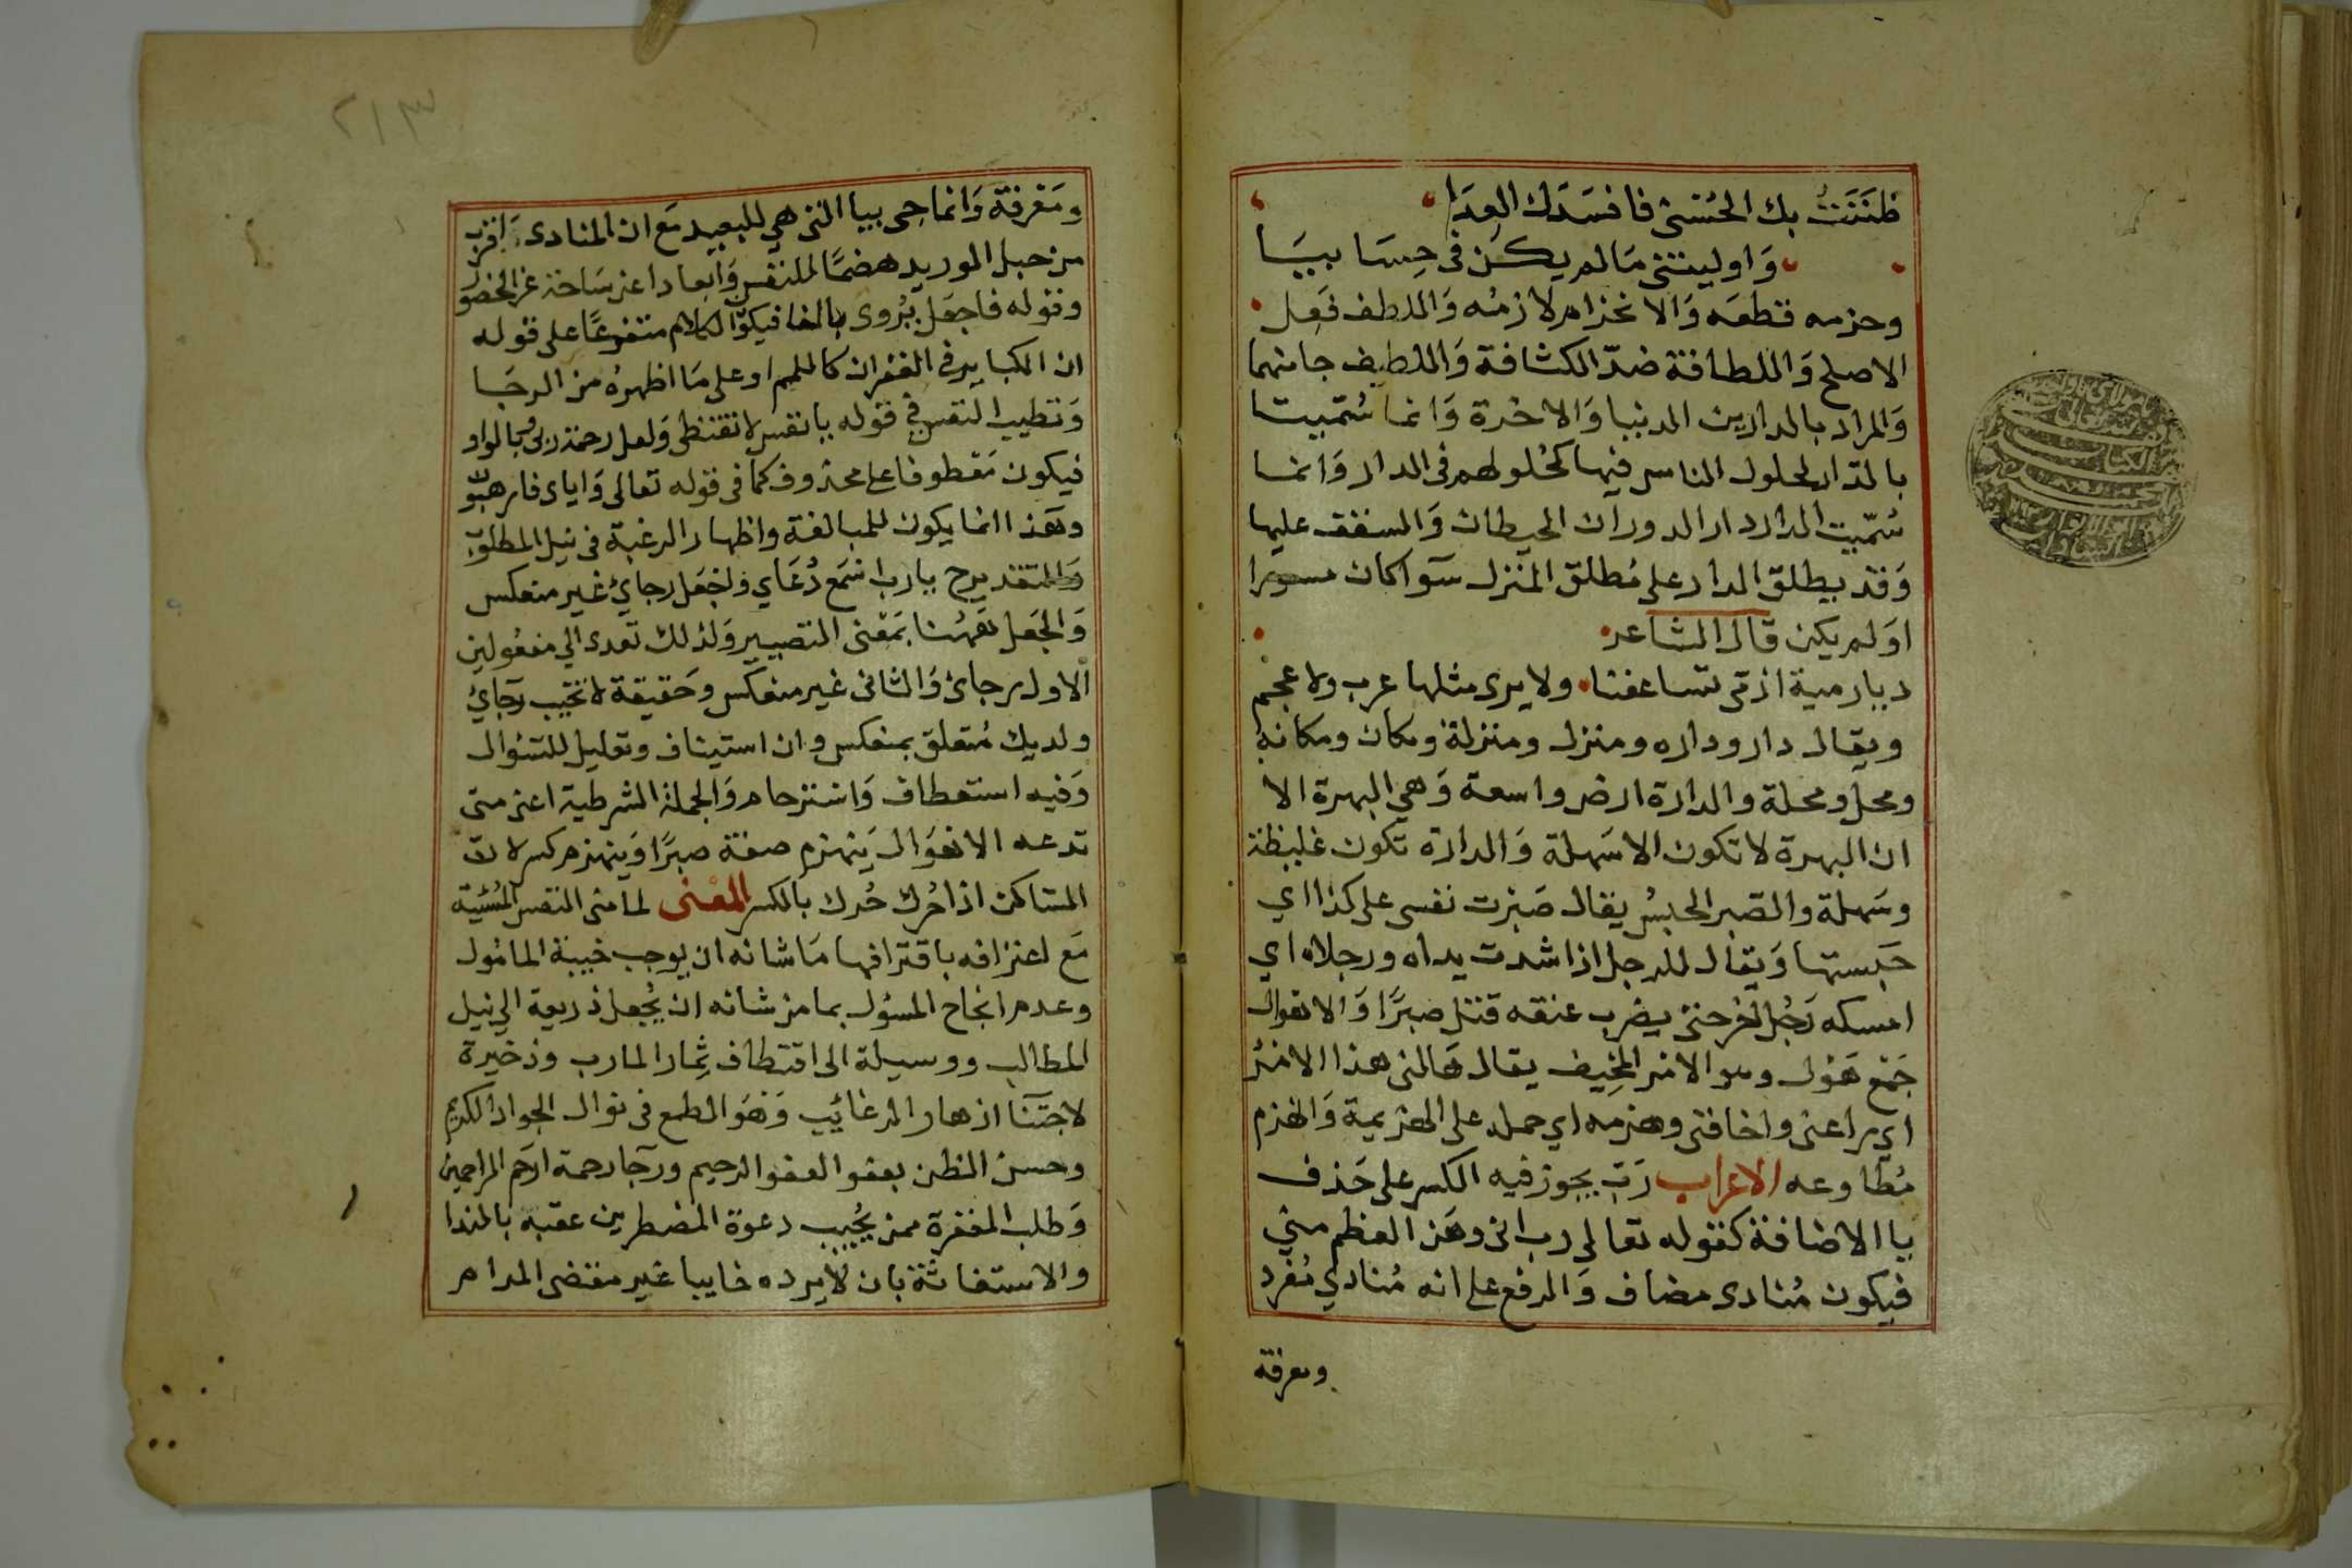 ظَنَنتُ بك الحُسْنى فافسَدَك العِدَا
وَاوليتنى مَا لم يكن فى حِسَابيَا
وحزمه قطعَه وَالانخزام لازمُه وَاللطف فَعِل
الاصلح وَاللطافة ضدّ الكثافة وَاللطيف جامنهما
وَالمراد بالدارين الدنيا وَالاخرة وَانما سُمّيت
بالدّار لحلول الناس فيها كحُلولهم فى الدار وَانما
سُمّيت الدار دار الدوران الحيطان وَالسقف عليها
وَقد يطلق الدار على مُطلق المنزل سَوآ كان
اوَلم يكن قال الشاعر
ديار مية اذ مّى تساعفنا ولا يرى مثلها عرب ولا عجم
ويقال دار وداره ومنزل ومنزلة ومكان ومكانة
ومحل ومحلة والدارة ارض واسعة وَهي البهرة الا
ان البهرة لا تكون الا سَهلة وَالدارة تكون غليظة
وسَهلة والصّبر الحبسُ يقال صَبَرت نفسى على كذا اي
حَبستها وَيقال للرجل اذا شدت يداه ورجلاه اي
امسكه رَجُل اخر حتى يضرب عنقه قتل صبرًا وَالاهوال
جَمْع هَوْل وهو الامر المخِيف يقال هَالنى هذا الامْر
اي راعنى واخافنى وهزمه اي حمله على الهزيمة وَانهزم
مُطاوعه الاعراب رَبّ يجوز فيه الكسر على حَذف
يا الاضافة كقوله تعالى رب انى وهَن العظم منى
فيكون مُنادى مضاف وَالرفع على انه مُنادي مُفرد
ومعرفة
٢١٣
ومَعْرفة وَانما جِى بيا التى هي للبعيد مَع ان المنادى اقرب
من حبل الوريد هضمًا للنفس وَابعادا عن سَاحة عز الحضور
وقوله فاجعَل يُروى بالفا فيكون الكلام متفرعًا على قوله
ان الكباير فى الغفران كاللمم او على مَا اظهرهُ من الرجَا
وَتطييب النفس فى قوله يا نفس لا تقنطى وَلعل رحمة ربى وبالواو
فيكون مَعْطوفا على محذوف كما فى قوله تعالى وَاياى فارهبون
وهَذا انما يكون للمبالغة واظهار الرغبة فى نيل المطلوب
وَالتقدير ح يا رب اسْمَع دُعَاي واجْعَل رجائ غير منعكس
وَالجَعل هَهُنا بمَعْنى التصيير وَلذلك تعدى الي مفعولين
الاول رجائ وَالثانى غير منعكس وحَقيقة لا تخيّب رجآئ
ولديك مُتعلق بمنعكس وان استيناف وتعليل للسّؤال
وَفيه استعطاف وَاسْترحام وَالجملة الشرطية اعنى متى
تدعه الاهوَال يَنهزم صفة صبرًا وَينهزم كسر لان
السّاكن اذا حُرك حُرك بالكسر المعْنى لما منى النفس المُسْيَة
مَع اعترافه باقترافها مَا شانه ان يوجب خيبة المامُول
وعدم انجاح المسؤل بما من شانه ان يُجْعل ذريعة الى نيل
المطالب ووسيلة الى اقتطاف ثِمار المارب وذخيرة
لاجتنآ ازهار الرغائب وَهَو الطمع فى نوال الجواد الكريم
وحسن الظن بعفو العفو الرحيم ورجآ رحمة ارَحم الراحمين
وَطلب المغفرة ممن يُجيب دعوة المضطرين عقبه بالندا
والاستغاثة بان لا يرده خايبا غير مقضى المرام